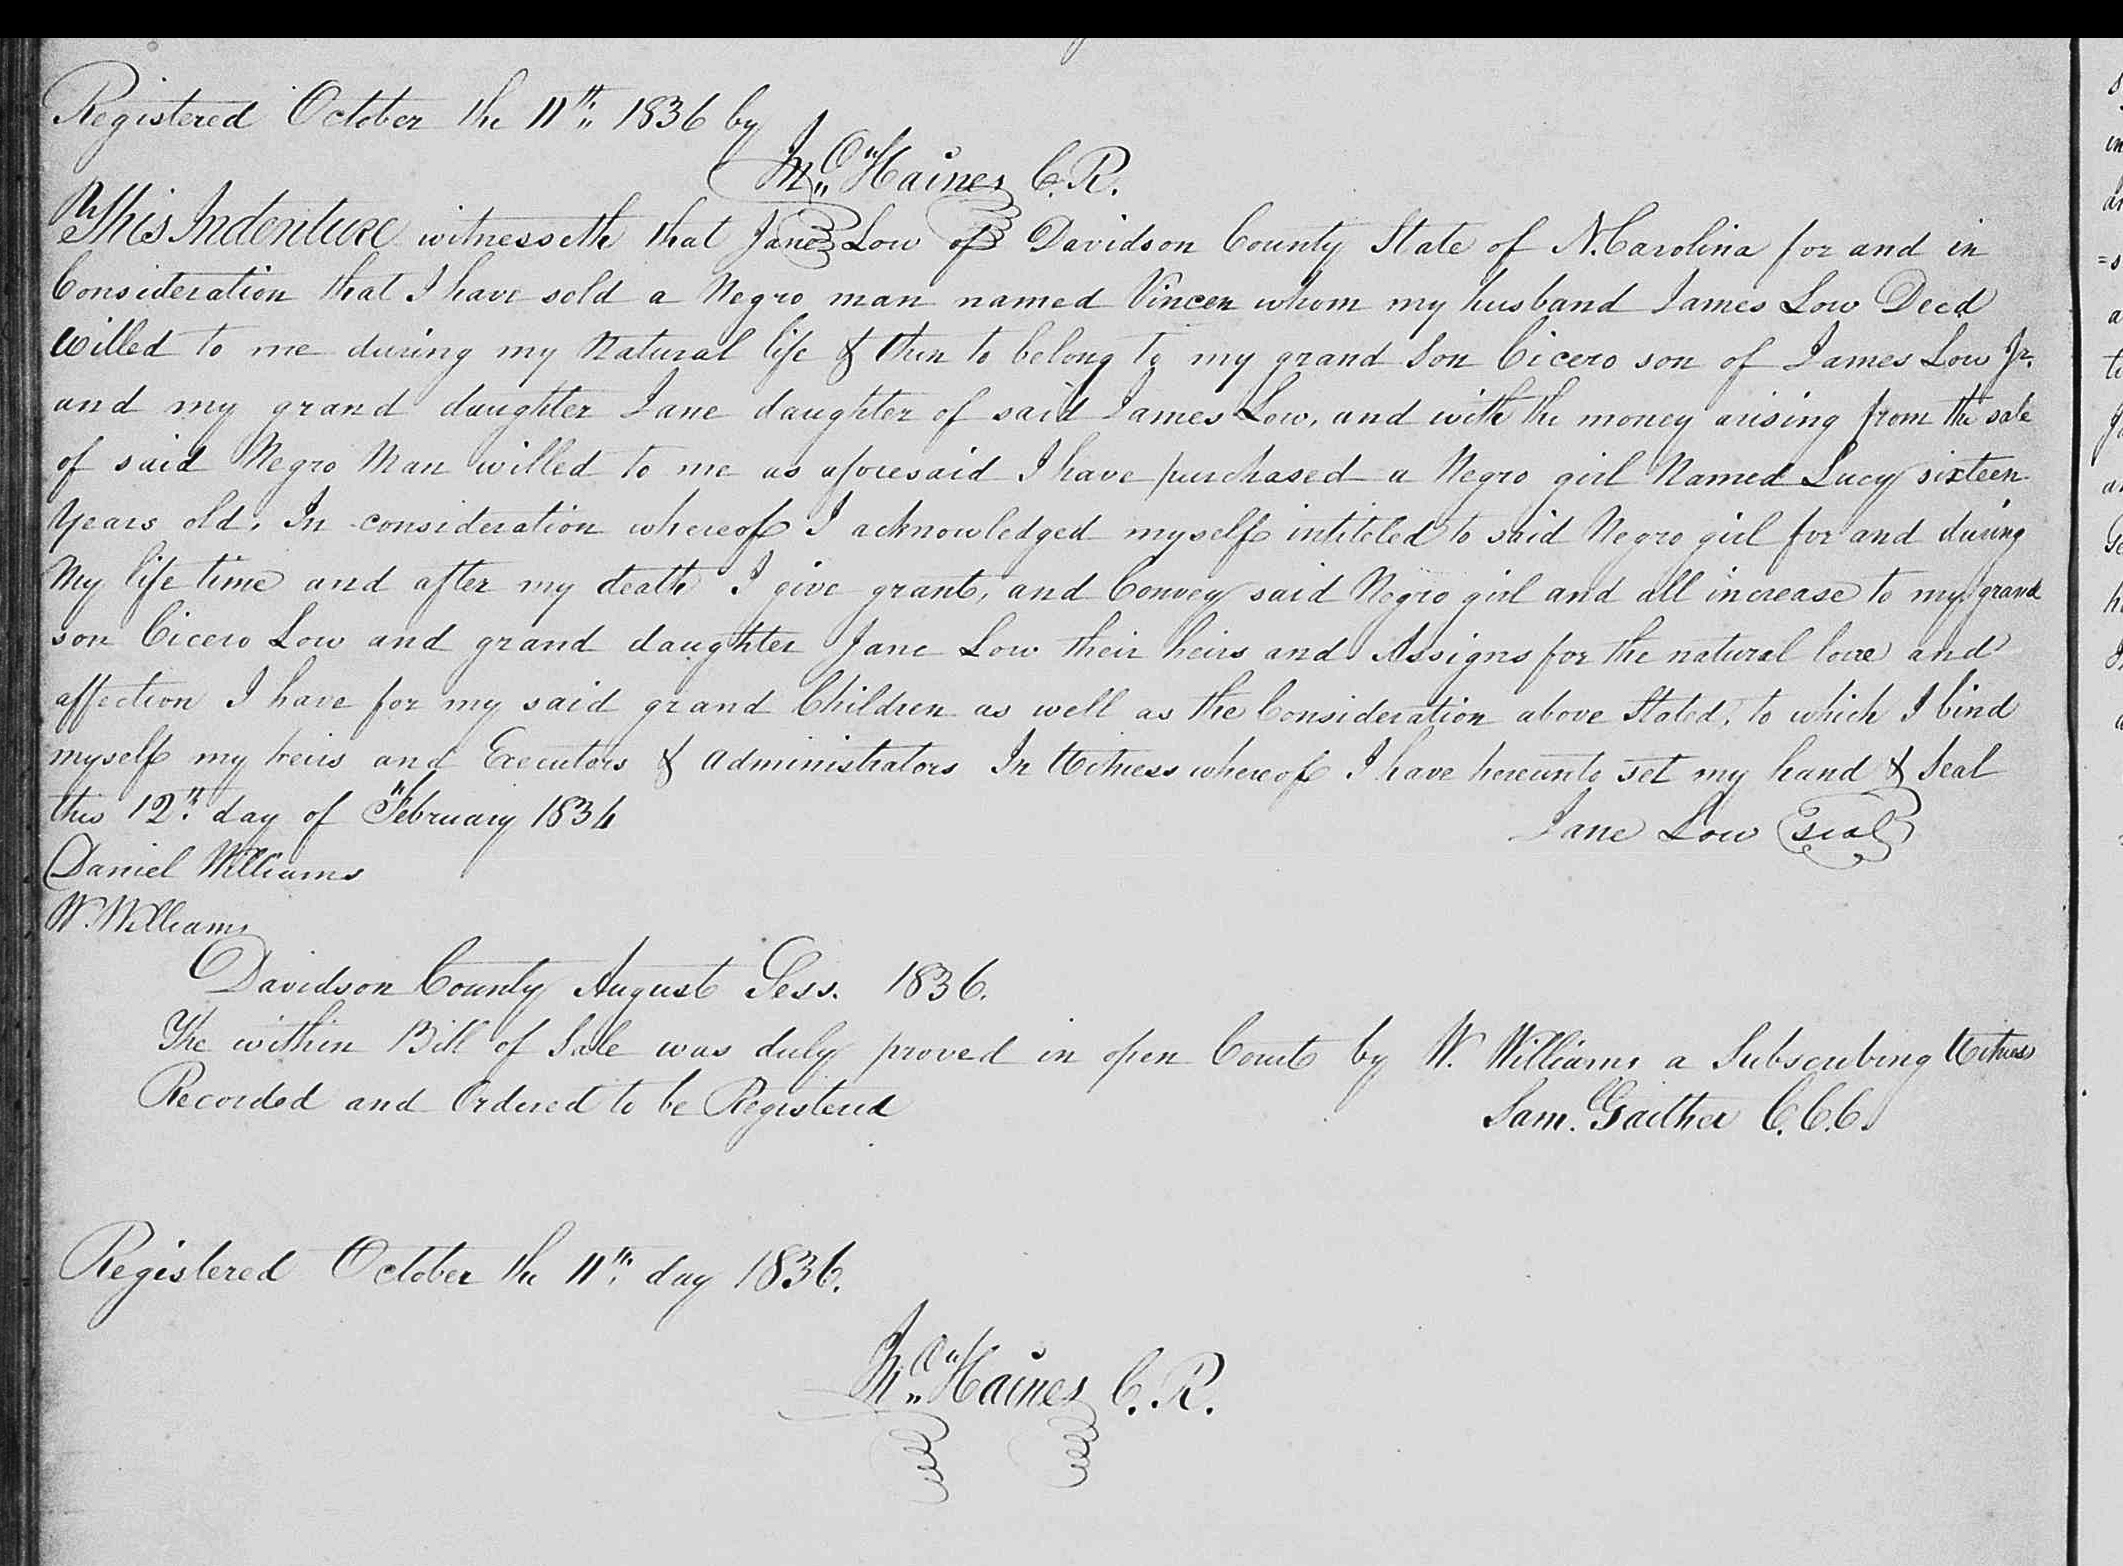 Registered October the 11th 1836 by
Haines C.R.
This Indenture witnesseth that Jane Low of Davidson County State of N. Carolina for and in
Consideration that I have sold a Negro man named Vincen whom my husband James Low Decd
willed to me during my Natural life & then to belong to my grand Son Cicero son of James Low Jr.
and my grand daughter Jane daughter of said James Low, and with the money arising from the sale
of said Negro Man willed to me as aforesaid I have purchased a Negro girl Named Lucy sixteen
Years old, In consideration whereof I acknowledged myself intiteled to said Negro girl for and during
My life time and after my death I give grant, and Convey said Negro girl and all increase to my grand
son Cicero Low and grand daughter Jane Low their heirs and Assigns for the natural love and
affection I have for my said grand Children as well as the Consideration above Stated, to which I bind
myself my heirs and Executors & administrators In Witness whereof I have hereunto set my hand & Seal
this 12th day of February 1834 Jane Low seal
Daniel Williams
W. Williams
Davidson County August Sess. 1836.
The within Bill of Sale was duly proved in open Court by W. Williams a Subscribing Witness
Recorded and Ordered to be Registered Sam. Gaither C.C.C.
Registered October the 11th day 1836.
Haines C. R.